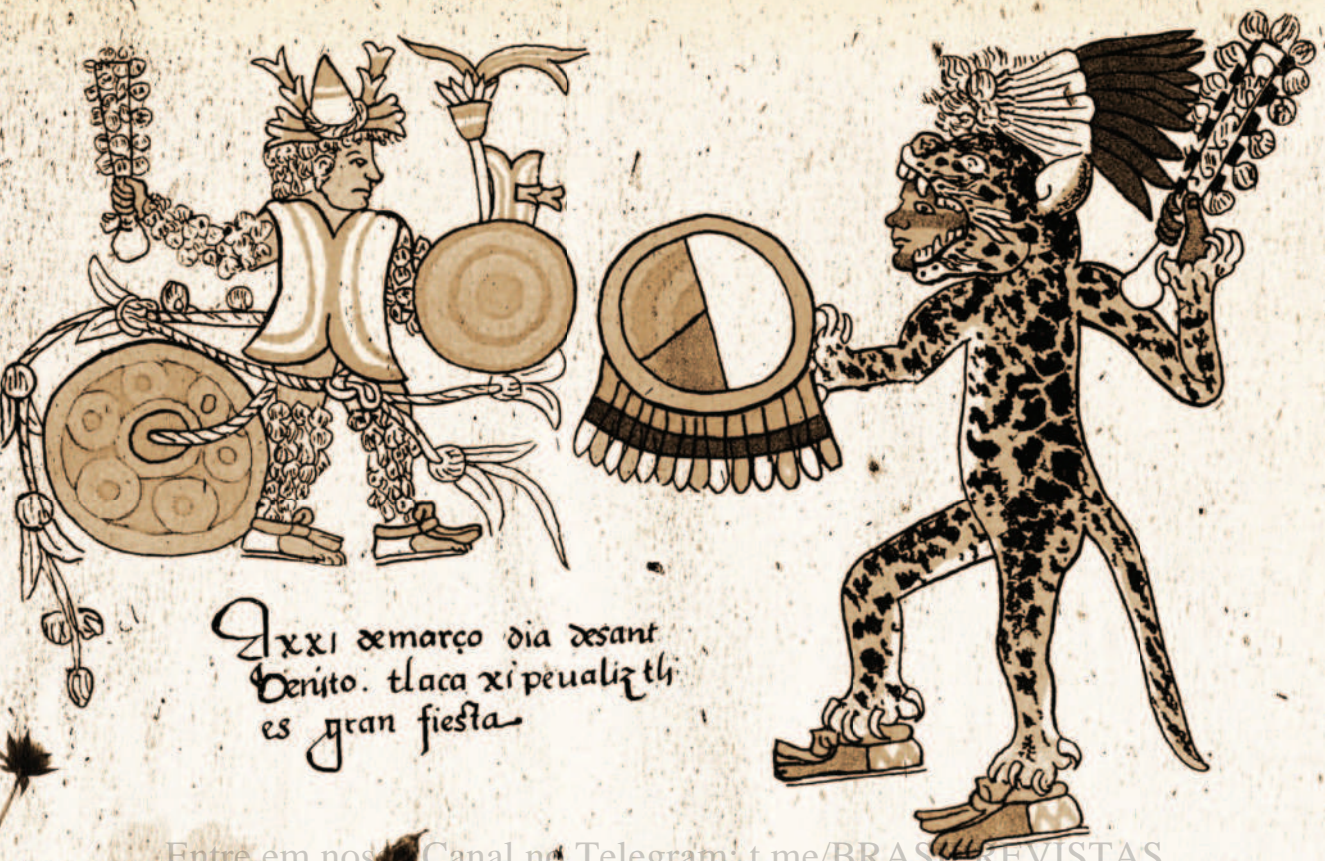 A xxi demarço dia desant
Benito. tlaca xipeualiztli
es gran fiesta
Entre em nosso Canal no Telegram: t.me/BRASILREVISTAS